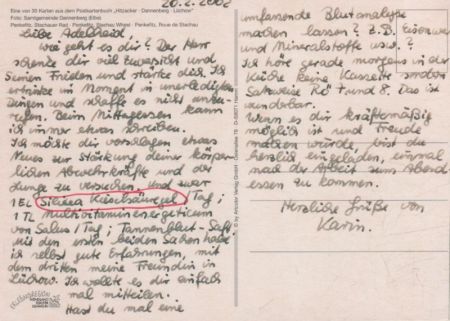 20.2.2002
Eine von 30 Karten aus dem Postkartenbuch „Hitzacker · Dannenberg · Lüchow"
Foto: Samtgemeinde Dannenberg (Elbe)
Penkefitz, Stachauer Rad · Penkefitz, Stachau Wheel · Penkefitz, Roue de Stachau
Liebe Adelheid,
wie geht es dir? Der Herr
schenke dir viel Zuversicht und
Seinen Frieden und stärke dich. Ich
ertrinke im Moment in unerledigten
Dingen und schaffe es nicht anzu-
rufen. Beim Mittagessen kann
ich immer etwas schreiben.
Ich möchte dir vorschlagen etwas
Neues zur Stärkung deiner körper-
lichen Abwehrkräfte und der
Lunge zu versuchen, und zwar
1 EL Silicea Kieselsäuregel / Tag;
1 TL Multivitamin energeticum
von Salus / Tag; Tannenblut-Saft.
Mit den ersten beiden Sachen habe
ich selbst gute Erfahrungen, mit
dem dritten meine Freundin in
Lüchow. Ich wollte es dir einfach
mal mitteilen.
Hast du mal eine
umfassende Blutanalyse
machen lassen? Z.B. Eisenwert
und Mineralstoffe usw.?
Ich höre gerade morgens in der
Küche deine Kassette
Rö 7 und 8. Das ist
wunderbar.
Wenn es dir kräftemäßig
möglich ist und Freude
machen würde, bist du
herzlich eingeladen, einmal
nach der Arbeit zum Abend
essen zu kommen.
Herzliche Grüße von
Karin.